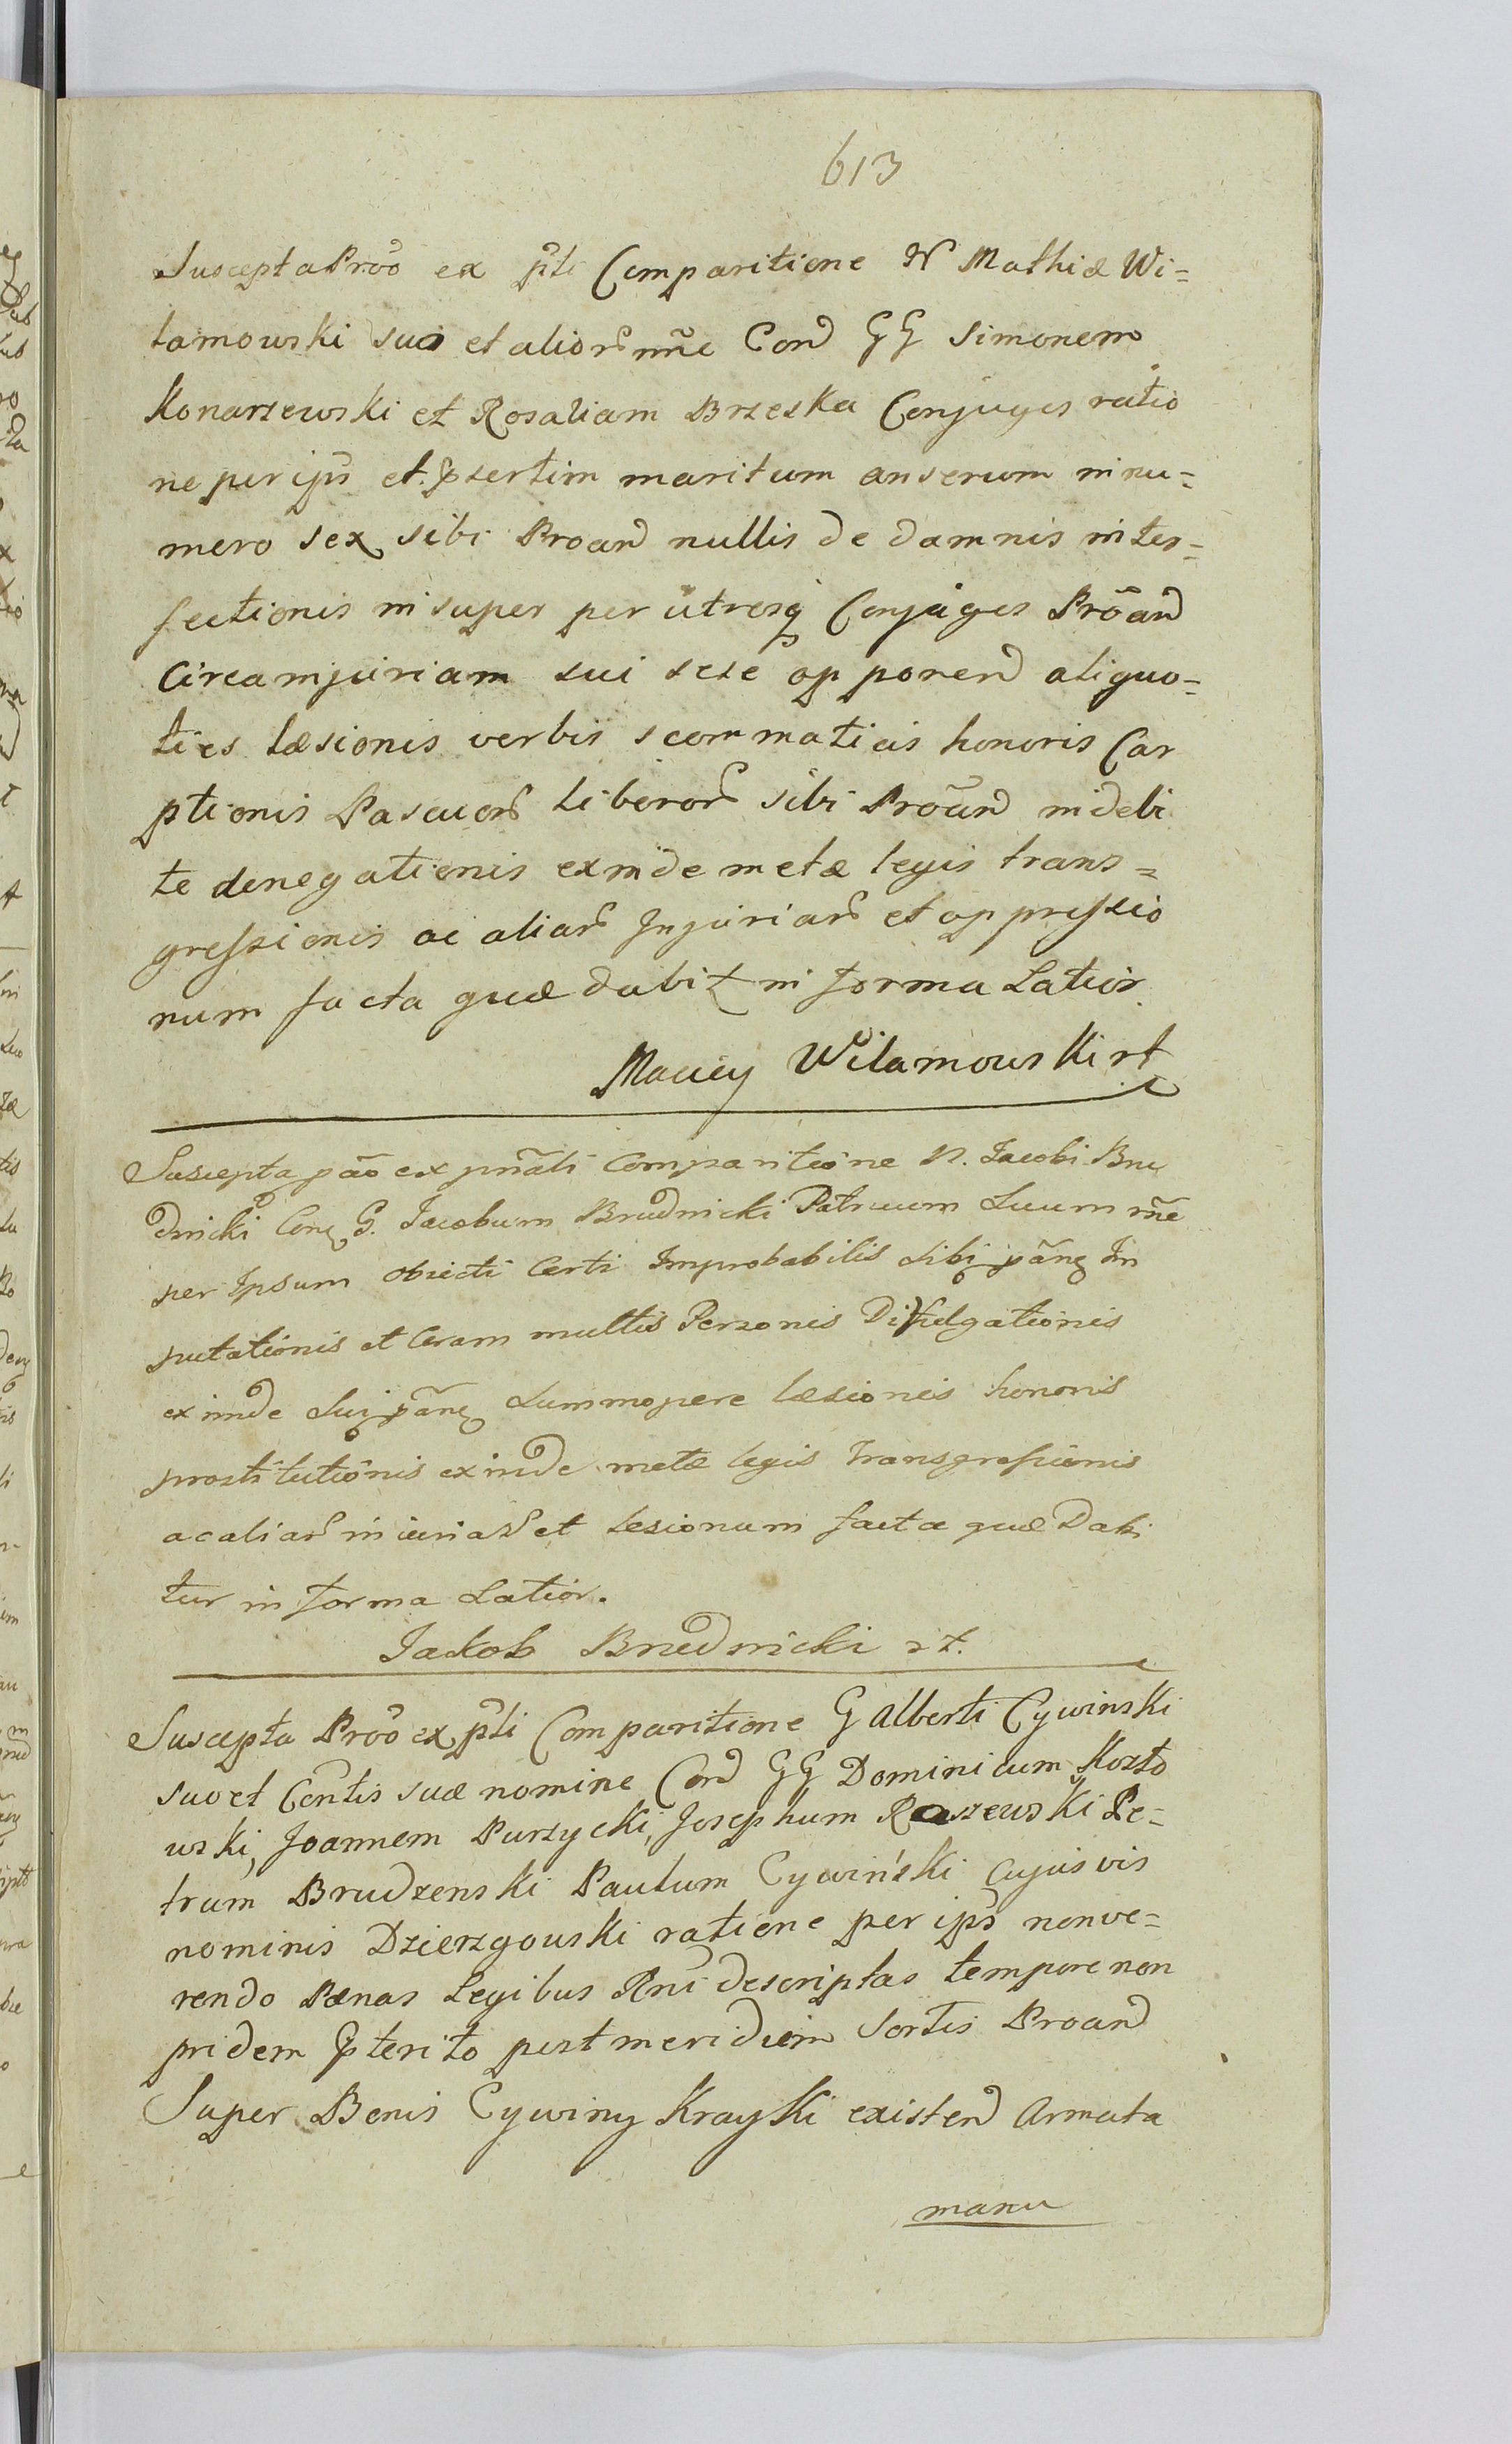 613
Suscepta Prõõ ex p̃ti Comparitione N Mathiæ Wi=
lamowski suo et alior̃ nñe Con∂ GG Simonem
Konarzewski et Rosaliam Brzeska Conjuges ratio
ne per ips̃ et p̃sertim maritum anserum in nu=
mero sex sibi Proan∂ nullis de damnis inter=
fectionis insuper per utrosq Conjuges Prõan∂
Circa injuriam sui sese opponen∂ aliquo=
ties læsionis verbis scommaticis honoris Car
ptionis Pascuor̃ Liberor̃ sibi Prõan∂ indebi
te denegationis exinde metæ legis trans=
gressionis ac aliar̃ Injuriar̃ et oppressio
num facta quæ dabit in forma Latior
Maciey Wilamowski rt
Suscepta pão ex pñali Comparitione N. Jacobi Bru
dnicki Con G. Jacobum Brudnicki Patruum Suum rñe
per Ipsum obiecti Certi Improbabilis Sibi pãn Im
putationis et Coram multis Personis Divulgationis
exinde Sui pãn Summopere læsionis honoris
prostitutionis exinde metæ legis transgressionis
ac aliar̃ iniuriar̃ et lesionum facta quæ Dabi
tur in forma Latior.
Jakob Brudnicki rt.
Suscepta Prõõ ex p̃ti Comparitione G Alberti Cywinski
suo et C̃ontis suæ nomine Con∂ GG Dominicum Kozło
wski, Joannem Purzycki, Josephum Raszewski Pe=
trum Brudzenski Paulum Cywiński Cujusvis
nominis Dzierzgowski ratione per ips̃ non ve=
rendo Pænas Legibus Rñi descriptas tempore non
pridem p̃terito post meridiem Sortis Proan∂
Super Bonis Cywiny Krayki existen∂ Armata
manu